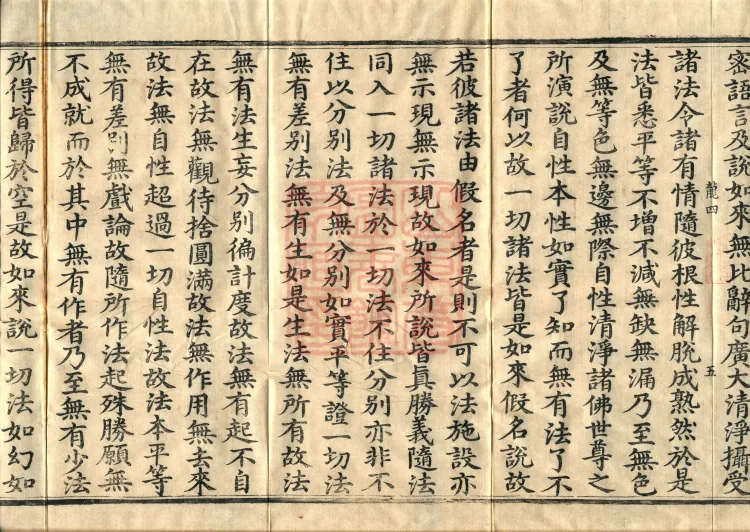 密語言及說如來無比辭句廣大清淨攝受
諸法令諸有情隨彼根性解脫成熟然於是
法皆悉平等不增不減無缺無漏乃至無色
及無等色無邊無際自性清淨諸佛世尊之
所演說自性本性如實了知而無有法了不
了者何以故一切諸法皆是如來假名說故
若彼諸法由假名者是則不可以法施設亦
無示現無示現故如來所說皆真勝義隨法
同入一切諸法於一切法不住分別亦非不
住以分別法及無分別如實平等證一切法
無有差別法無有生如是生法無所有故法
無有法生妄分別徧計度故法無有起不自
在故法無觀待捨圓滿故法無作用無去來
故法無自性超過一切自性法故法本平等
無有差別無戲論故隨所作法起殊勝願無
不成就而於其中無有作者乃至無有少法
所得皆歸於空是故如來說一切法如幻如
龍四
五